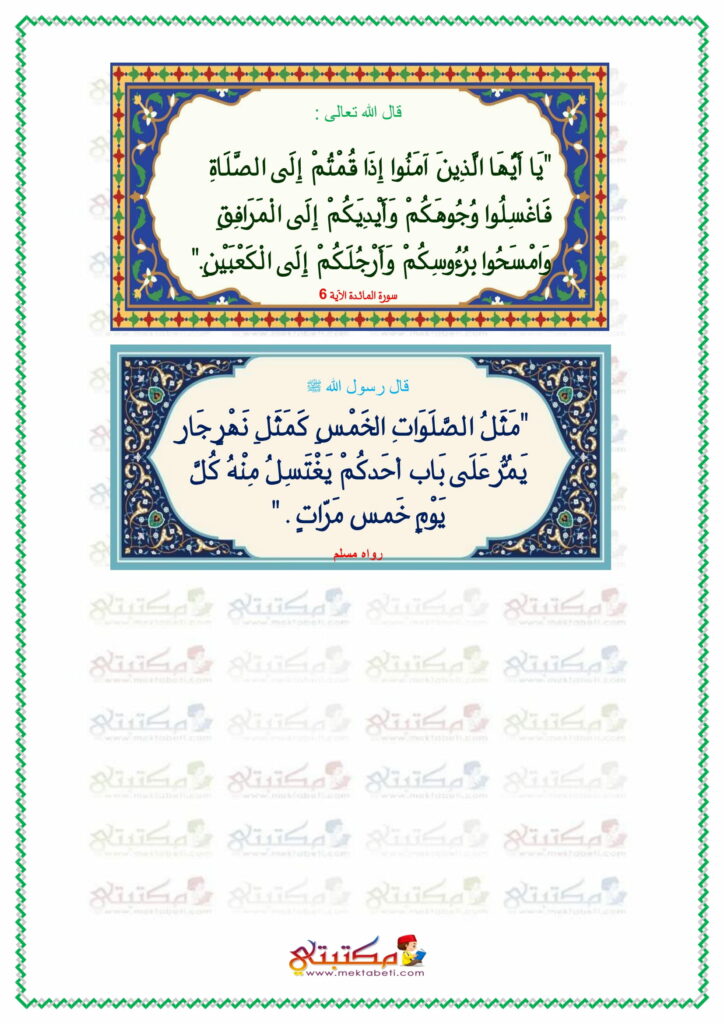 قال الله تعالى :
"يَا أَيُّهَا الَّذِينَ آمَنُوا إِذَا قُمْتُمْ إِلَى الصَّلَاةِ
فَاغْسِلُوا وُجُوهَكُمْ وَأَيْدِيَكُمْ إِلَى الْمَرَافِقِ
وَامْسَحُوا بِرُءُوسِكُمْ وَأَرْجُلَكُمْ إِلَى الْكَعْبَيْنِ."
سورة المائدة الآية 6
قال رسول الله ﷺ
"مَثَلُ الصَّلَوَاتِ الخَمْسِ كَمَثَلِ نَهْرٍ جَار
يَمُرُّ عَلَى بَاب أحَدكُمْ يَغْتَسِلُ مِنْهُ كُلَّ
يَوْمٍ خَمس مَرَّاتٍ . "
رواه مسلم
مكتبتي
www.mektabeti.com